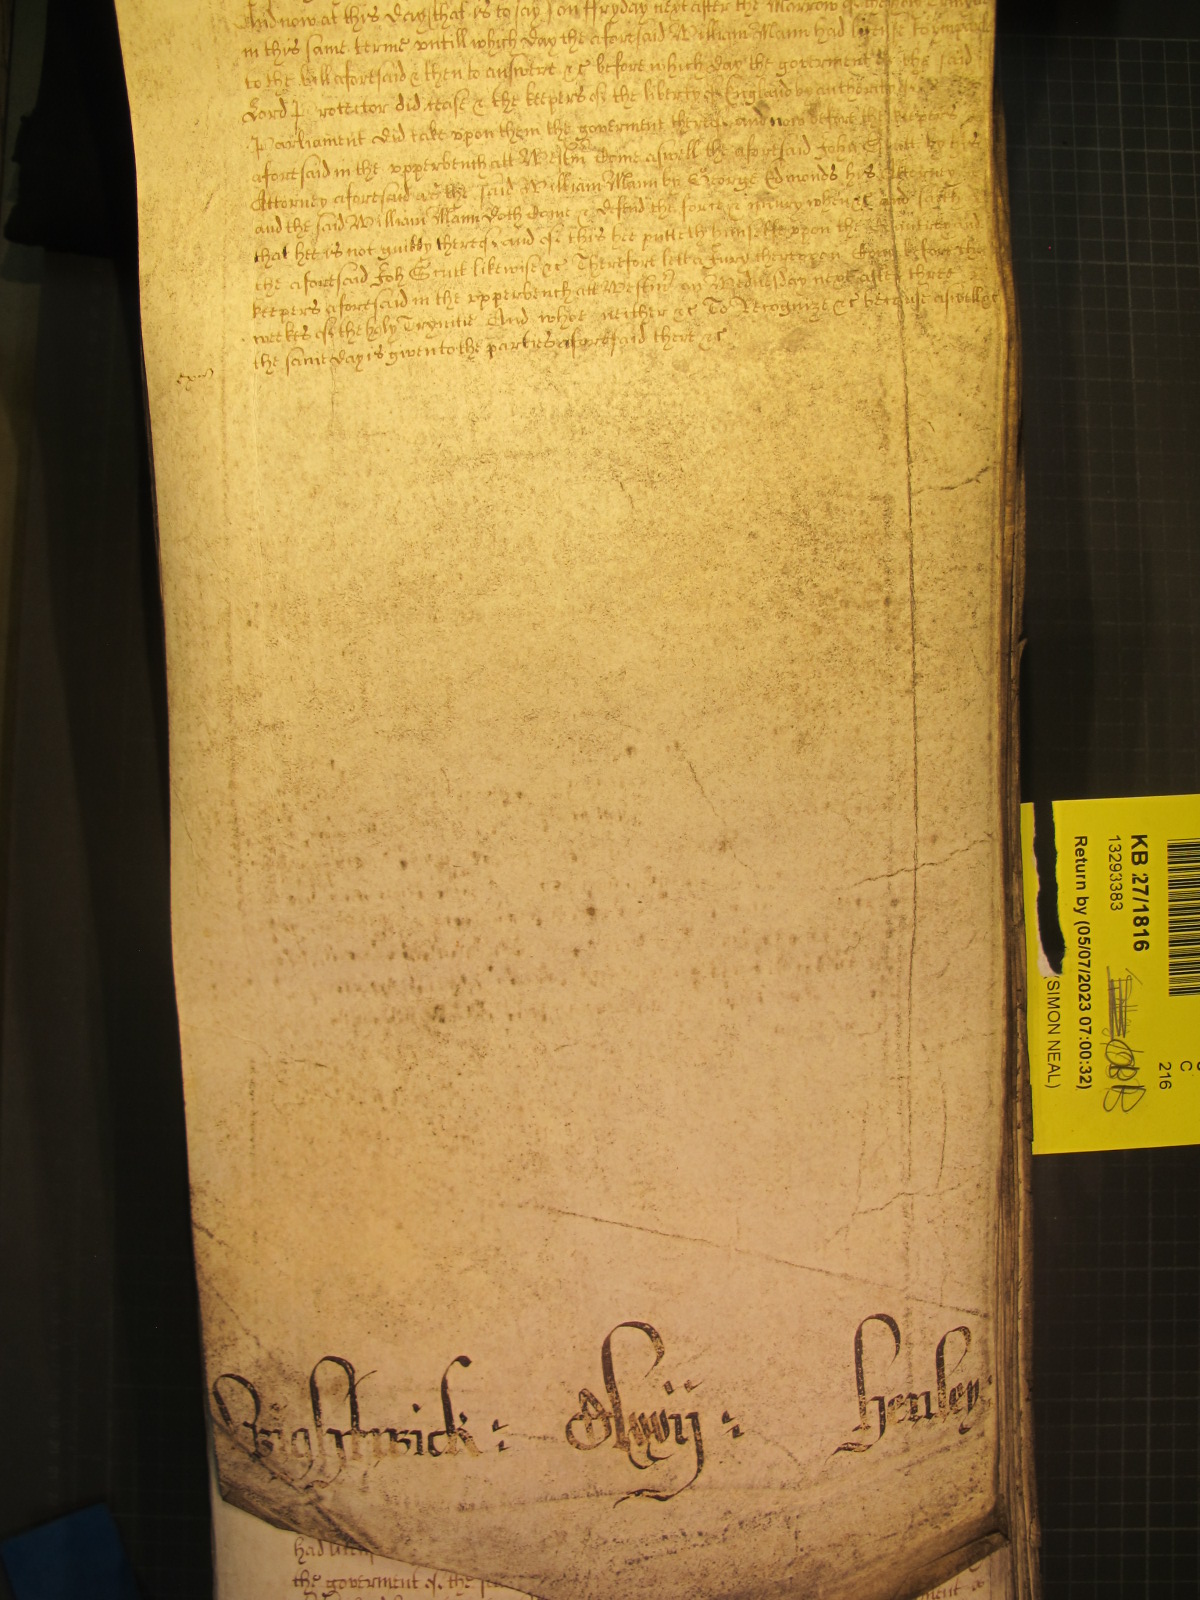 And now at this day (that is to say) on ffryday next after the Morrow of the holy Trinitie
in this same terme untill which day the aforesaid William Mann had license to imparle
to the bill aforesaid & then to answere &c before which day the goverment of the said
Lord Protector did cease & the keepers of the liberty of England by authority of
Parliament did take upon them the goverment thereof and now before the keepers
aforesaid in the upperbench att Westm come aswell the aforesaid John Scutt by his
Attorney aforesaid as the said William Mann by George Edmonds his Attorney
and the said William Mann doth come & defend the force & iniury when &c and saith
that hee is not guilty thereof and of this hee putteth himselfe upon the Countrey and
the aforesaid Joh Scutt likewise &c Therefore lett a Jury thereupon come before the
keepers aforesaid in the upperbench att Westmr on Wednesday next after three
weekes of the holy Trynitie And whoe neither &c To Recognize &c because aswell &c
the same day is given to the parties aforesaid there &c
Brightwick : Olwij : Henley
had licens
the goverment of the
KB 27/1816
13293383
Return by (05/07/2023 07:00:32)
(SIMON NEAL)
C
216